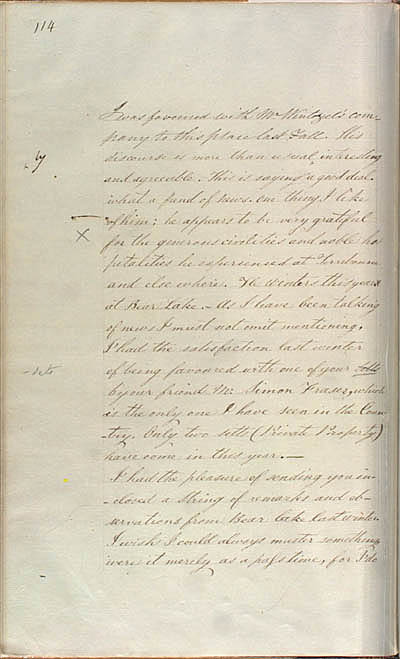 114
I was favoured with Mr Wentzel's com-
pany to this place last Fall. His
discourse is more than usual, interesting
ly
and agreeable. This is saying a good deal.
what a fund of news. one thing I like
of him; he appears to be very grateful
X
for the generous civilities and noble hos
pitalities he experienced at Terrebonne
and else where. He winters this year
at Bear Lake. - As I have been talking
of news I must not omit mentioning,
I had the satisfaction last winter
of being favoured with one of your
by your friend Mr. Simon Fraser, which
is the only one I have seen in the Coun
-try. Only two setts (Private Property)
have come in this year. —
I had the pleasure of sending you in-
-closed a String of remarks and ob-
servations from Bear lake last winter
I wish I could always muster something
were it merely as a passtime, for I do